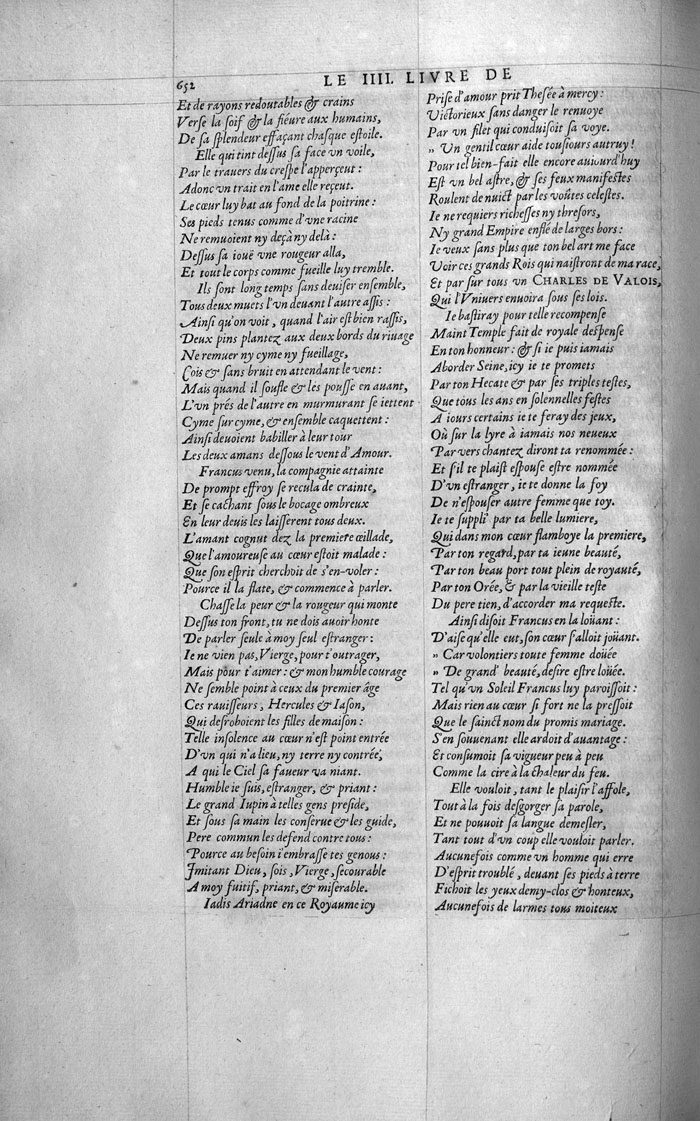 652
LE IIII. LIVRE DE
Et de rayons redoutables & crains
Verse la soif & la fiéure aux humains,
De sa splendeur effaçant chasque estoile.
Elle qui tint dessus sa face vn voile,
Par le trauers du crespe l'apperçeut :
Adonc vn trait en l'ame elle reçeut.
Le cœur luy bat au fond de la poitrine :
Ses pieds tenus comme d'vne racine
Ne remuoient ny deçà ny delà :
Dessus sa ioüe vne rougeur alla,
Et tout le corps comme fueille luy tremble.
Ils sont long temps sans deuiser ensemble,
Tous deux muets l'vn deuant l'autre assis :
Ainsi qu'on voit, quand l'air est bien rassis,
Deux pins plantez aux deux bords du riuage
Ne remuer ny cyme ny fueillage,
Cois & sans bruit en attendant le vent :
Mais quand il soufle & les pousse en auant,
L'vn prés de l'autre en murmurant se iettent
Cyme sur cyme, & ensemble caquettent :
Ainsi deuoient babiller à leur tour
Les deux amans dessous le vent d'Amour.
Francus venu, la compagnie attainte
De prompt effroy se recula de crainte,
Et se cachant sous le bocage ombreux
En leur deuis les laisserent tous deux.
L'amant cognut dez la premiere œillade,
Que l'amoureuse au cœur estoit malade :
Que son esprit cherchoit de s'en-voler :
Pource il la flate, & commence à parler.
Chasse la peur & la rougeur qui monte
Dessus ton front, tu ne dois auoir honte
De parler seule à moy seul estranger :
Ie ne vien pas, Vierge, pour t'outrager,
Mais pour t'aimer : & mon humble courage
Ne semble point à ceux du premier âge
Ces rauisseurs, Hercules & Iason,
Qui desroboient les filles de maison :
Telle insolence au cœur n'est point entrée
D'vn qui n'a lieu, ny terre ny contrée,
A qui le Ciel sa faueur va niant.
Humble ie suis, estranger, & priant :
Le grand Iupin à telles gens preside,
Et sous sa main les conserue & les guide,
Pere commun les defend contre tous :
Pource au besoin i'embrasse tes genous :
Imitant Dieu, sois, Vierge, secourable
A moy fuitif, priant, & miserable.
Iadis Ariadne en ce Royaume icy
Prise d'amour prit Thesée à mercy :
Victorieux sans danger le renuoye
Par vn filet qui conduisoit sa voye.
» Vn gentil cœur aide tousiours autruy !
Pour tel bien-fait elle encore auiourd'huy
Est vn bel astre, & ses feux manifestes
Roulent de nuict par les voûtes celestes.
Ie ne requiers richesses ny thresors,
Ny grand Empire enflé de larges bors :
Ie veux sans plus que ton bel art me face
Voir ces grands Rois qui naistront de ma race,
Et par sur tous vn CHARLES DE VALOIS,
Qui l'Vniuers enuoira sous ses lois.
Ie bastiray pour telle recompense
Maint Temple fait de royale despense
En ton honneur : & si ie puis iamais
Aborder Seine, icy ie te promets
Par ton Hecate & par ses triples testes,
Que tous les ans en solennelles festes
A iours certains ie te feray des jeux,
Où sur la lyre à iamais nos neueux
Par vers chantez diront ta renommée :
Et s'il te plaist espouse estre nommée
D'vn estranger, ie te donne la foy
De n'espouser autre femme que toy.
Ie te suppli' par ta belle lumiere,
Qui dans mon cœur flamboye la premiere,
Par ton regard, par ta ieune beauté,
Par ton beau port tout plein de royauté,
Par ton Orée, & par la vieille teste
Du pere tien, d'accorder ma requeste.
Ainsi disoit Francus en la loüant :
D'aise qu'elle eut, son cœur s'alloit joüant.
» Car volontiers toute femme doüée
» De grand' beauté, desire estre loüée.
Tel qu'vn Soleil Francus luy paroissoit :
Mais rien au cœur si fort ne la pressoit
Que le sainct nom du promis mariage.
S'en souuenant elle ardoit d'auantage :
Et consumoit sa vigueur peu à peu
Comme la cire à la chaleur du feu.
Elle vouloit, tant le plaisir l'affole,
Tout à la fois desgorger sa parole,
Et ne pouuoit sa langue demesler,
Tant tout d'vn coup elle vouloit parler.
Aucunefois comme vn homme qui erre
D'esprit troublé, deuant ses pieds à terre
Fichoit les yeux demy-clos & honteux,
Aucunefois de larmes tous moiteux